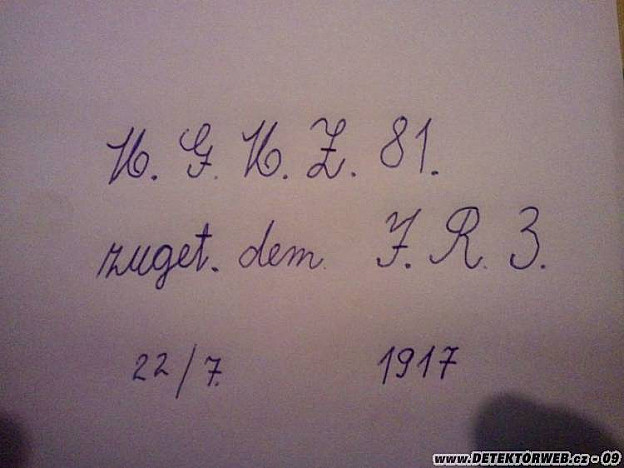 H. G. H. Z. 81.
zuget. dem J. R. 3.
22/7. 1917
www.DETEKTORWEB.cz - 09